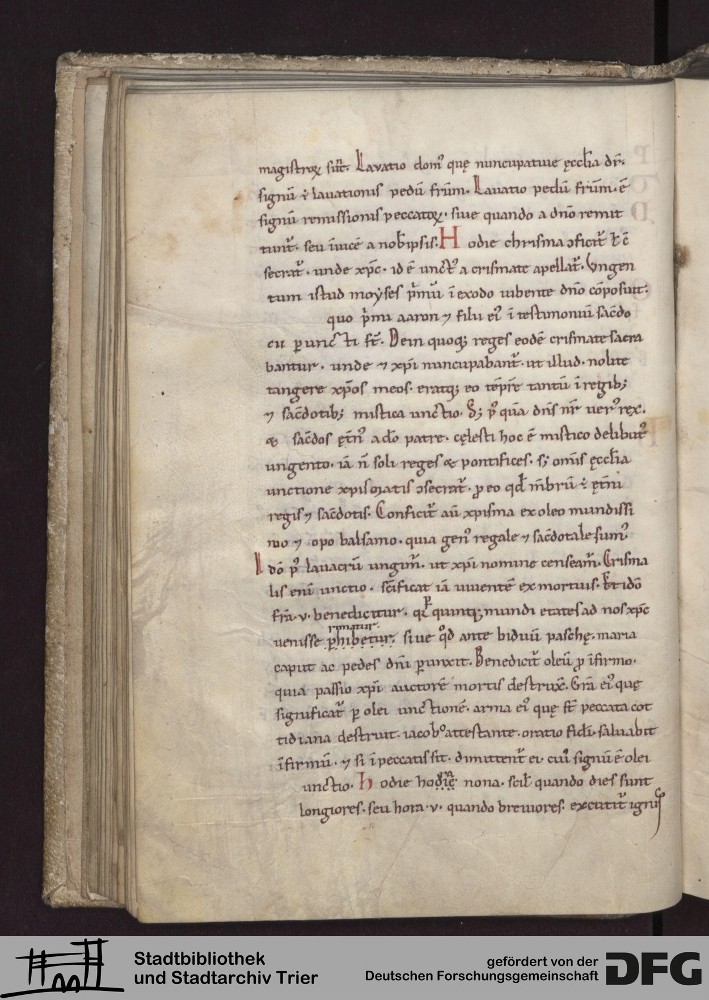 magistroꝝ sūt. Lauatio domꝰ quę nuncupatiue ęcclīa dr̄.
signū ÷ lauationis pedū frūm. Lauatio pedū frūm ē
signū remissionis peccatoꝝ. siue quando a dn̄o remit
tunt̄. seu īuicē a nob ipsis. Hodie chrisma ɔficit̄
secrat̄. unde xp̄c. id ē unctꝰ a crismate apellat̄. Vngen
tum istud moẏses p̄mū ī exodo iubente dn̄o cōposuit:
quo p̄mi aaron ⁊ filii eiꝰ ī testimoniū sac̄do
cii ꝑuncti st̄. Dein quoqꝫ reges eodē crismate sacra
bantur. unde ⁊ xp̄i nuncupabant̄. ut illud. nolite
tangere xp̄os meos. eratqꝫ eo tēp̄re tantū ī regibꝫ
⁊ sac̄dotibꝫ mistica unctio. Sꝫ pꝰ quā dn̄s nr̄ uerꝰ rex.
& sac̄dos ęt̄nꝰ a dō patre. cęlesti hoc ē mistico delibutꝰ
ungento. iā n̄ soli reges & pontifices. sꝫ om̄is ęcclīa
unctione xpismatis ɔsecrat̄. ꝓ eo qd̄ mēbrū ÷ ęt̄ni
regis ⁊ sac̄dotis. Conficit̄ aū xpisma ex oleo mundissi
mo ⁊ opobalsamo. quia genꝰ regale ⁊ sac̄dotale sumꝰ
Idō pꝰ lauacrū ungim̄. ut xp̄i nomine censeam̄. Crisma
lis eni unctio. sc̄ificat iā uiuentē ex mortuis.
.v. benedicitur. quinqꝫ mundi etates ad nos xp̄c
uenisse ꝓhibetur. siue qd̄ ante biduū paschę. maria
caput ac pedes dn̄i ꝑunxit. Benedicit̄ oleū ꝓ īfirmo.
quia passio xp̄i auctorē mortis destruxit. Gr̄a eiꝰ quę
significat̄ ꝑ olei unctionē. arma eiꝰ quę st̄ peccata cot
tidiana destruit. iacobo attestante. oratio fidei saluabit
īfirmū. ⁊ si ī peccatis sit. dimittent̄ ei. cuiꝰ signū ē olei
unctio. Hodie nona. scil̄ quando dies sunt
longiores. seu hora .v. quando breuiores. excutit̄ ignis
Stadtbibliothek
und Stadtarchiv Trier
gefördert von der
Deutschen Forschungsgemeinschaft
DFG